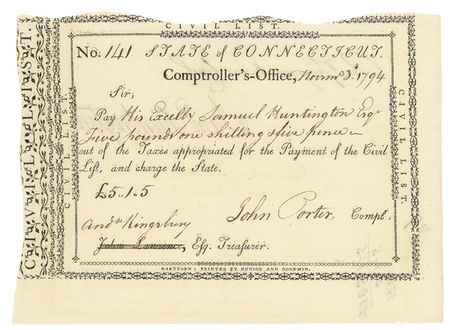 CIVIL LIST.
No. 141 STATE of CONNECTICUT.
Comptroller's-Office, Novmr 3d 1794
Sir,
Pay His Excelly Samuel Huntington Esqr
Five pounds one shilling & five pence
out of the Taxes appropriated for the Payment of the Civil
List, and charge the State.
£5.1.5
John Porter Compt.
Andw Kingsbury
John Lawrence, Esq. Treasurer.
HARTFORD: PRINTED BY HUDSON AND GOODWIN.
CIVIL LIST.
CIVIL LIST.
CIVIL LIST.